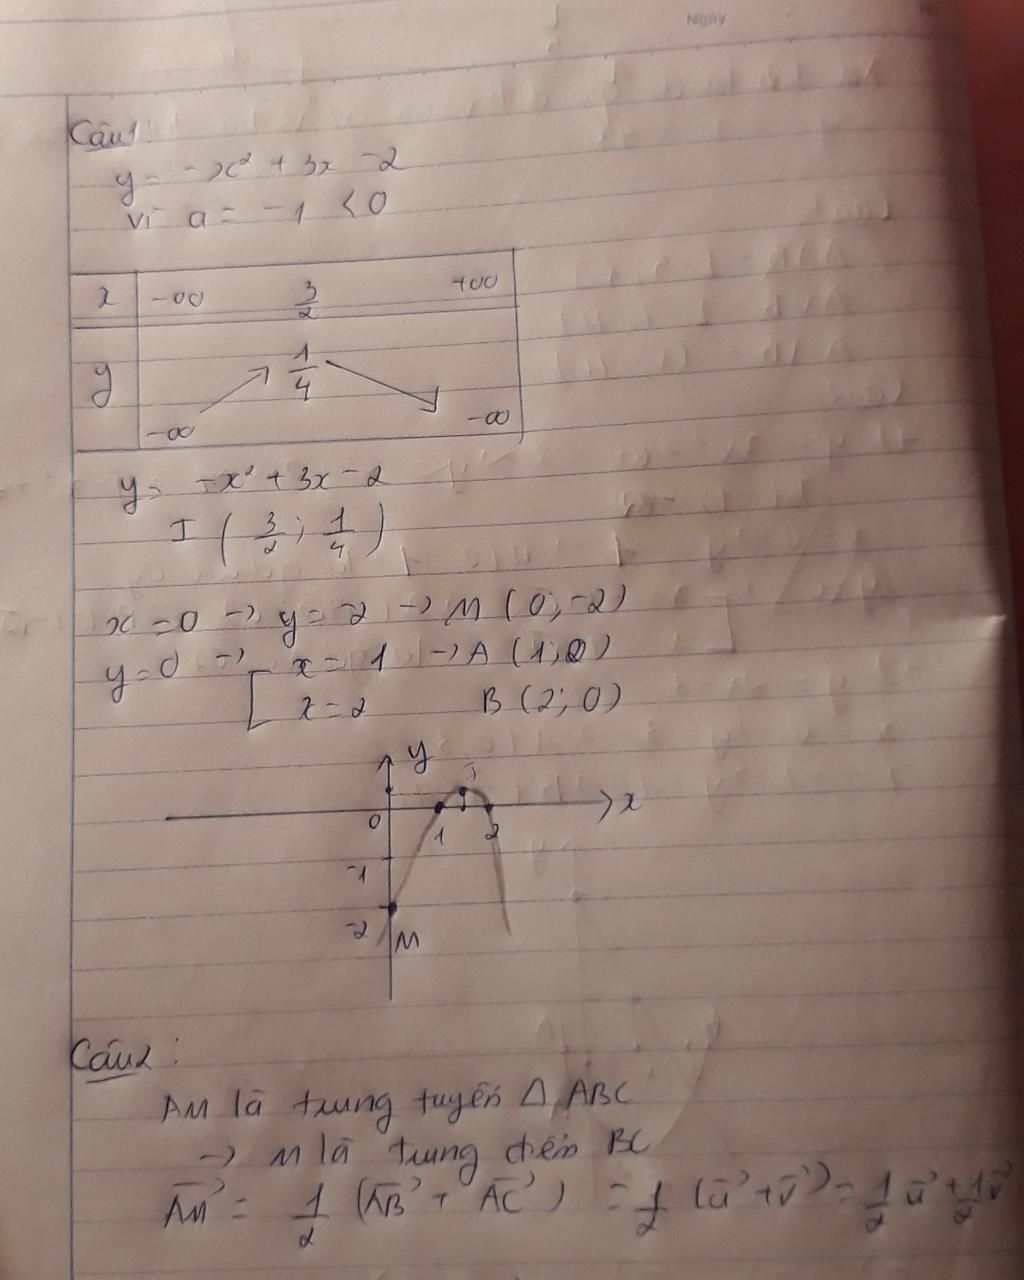 Ngày
Câu1:
y = -x² + 3x -2
Vì a = -1 < 0
x -∞ 3/2 +∞
y -∞ 1/4 -∞
y = -x² + 3x - 2
I ( 3/2 ; 1/4 )
x = 0 -> y = -2 -> M (0; -2)
y = 0 -> [ x = 1 -> A (1; 0)
x = 2 B (2; 0)
y
I
x
0 1 2
-1
-2 M
Câu2:
AM là trung tuyến Δ ABC
-> M là trung điểm BC
AM⃗ = 1/2 (AB⃗ + AC⃗) = 1/2 (u⃗ + v⃗) = 1/2 u⃗ + 1/2 v⃗